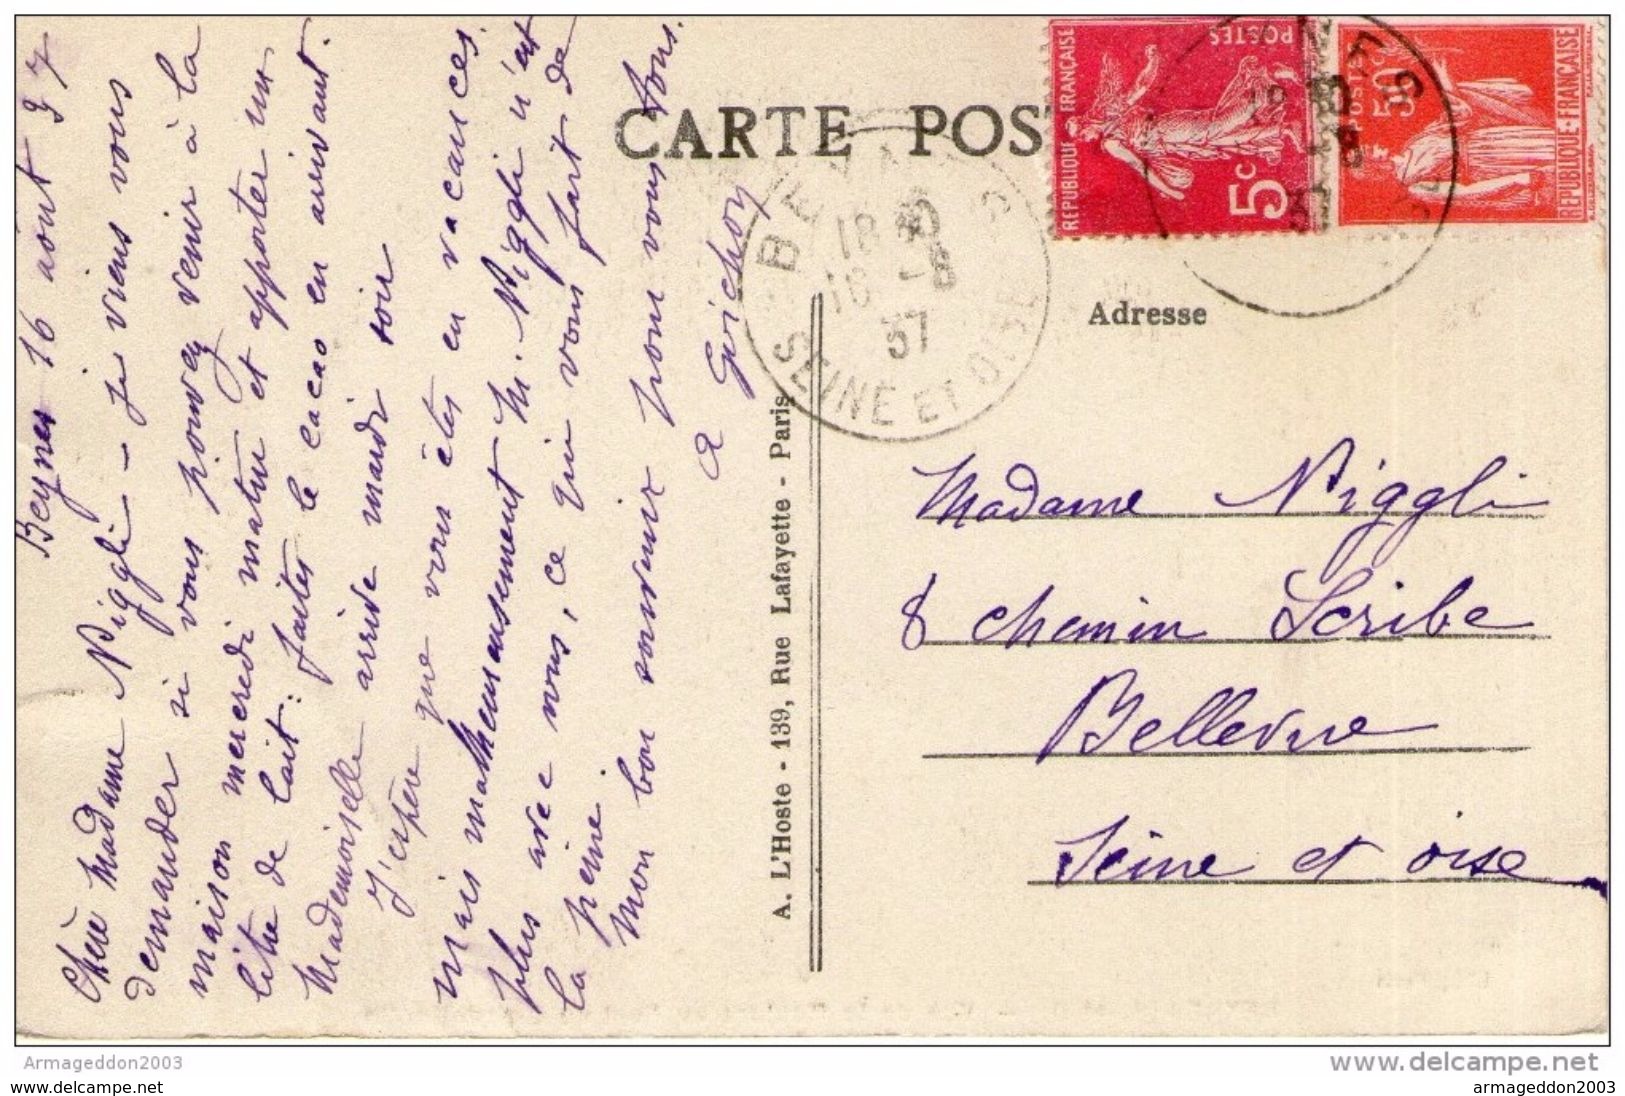 Beynes 16 août 37
Chère Madame Niggli - je viens vous
demander si vous pouvez venir à la
maison mercredi matin et apporter un
litre de lait: faites le cacao en arrivant.
Mademoiselle arrive mardi soir
J'espère que vous êtes en vacances.
mais malheureusement M. Niggli n'est
plus avec nous, ce qui vous fait de
la peine
Mon bon souvenir pour vous tous.
A. L'Hoste - 139, Rue Lafayette - Paris
CARTE POST
BEYNES
18 30
16 -8
37
SEINE ET OISE
REPUBLIQUE FRANÇAISE
POSTES
5c
POSTES
50c
REPUBLIQUE-FRANÇAISE
Adresse
Madame Niggli
8 chemin Scribe
Bellevue
Seine et oise
Armageddon2003
www.delcampe.net
www.delcampe.net
armageddon2003